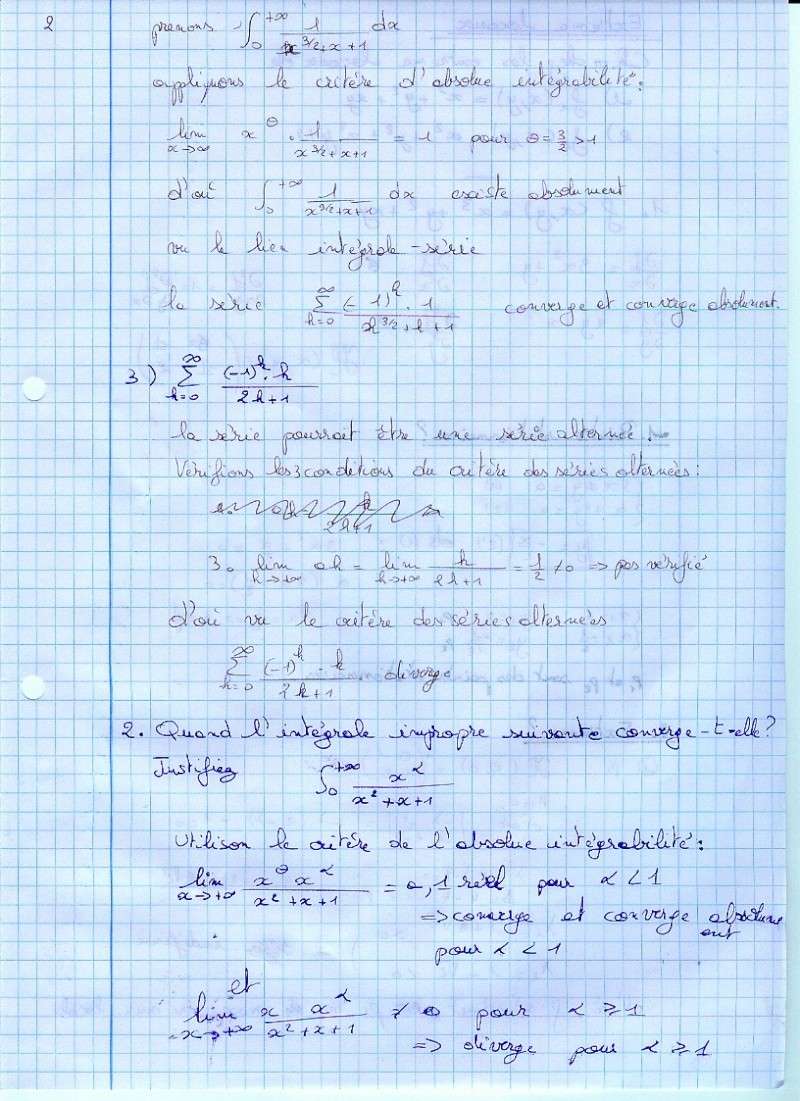 2
prenons ∫₀^{+∞} 1/(x^{3/2}+x+1) dx
appliquons le critère d'absolue intégrabilité :
lim_{x→∞} x^θ · 1/(x^{3/2}+x+1) = 1 pour θ = 3/2 > 1
d'où ∫₀^{+∞} 1/(x^{3/2}+x+1) dx existe absolument
vu le lien intégrale - série
la série Σ_{k=0}^{∞} (-1)^k · 1/(k^{3/2}+k+1) converge et converge absolument.
3) Σ_{k=0}^{∞} (-1)^k · k/(2k+1)
la série pourrait être une série alternée.
Vérifions les 3 conditions du critère des séries alternées :
3. lim_{k→+∞} ak = lim_{k→+∞} k/(2k+1) = 1/2 ≠ 0 => pas vérifié
d'où vu le critère des séries alternées
Σ_{k=0}^{∞} (-1)^k · k/(2k+1) diverge
2. Quand l'intégrale impropre suivante converge-t-elle ?
Justifiez ∫₀^{+∞} x^α/(x²+x+1)
Utilison le critère de l'absolue intégrabilité :
lim_{x→+∞} x^θ x^α/(x²+x+1) = 0, 1 réel pour α < 1
=> converge et converge absolument
pour α < 1
et
lim_{x→+∞} x x^α/(x²+x+1) ≠ 0 pour α ≥ 1
=> diverge pour α ≥ 1